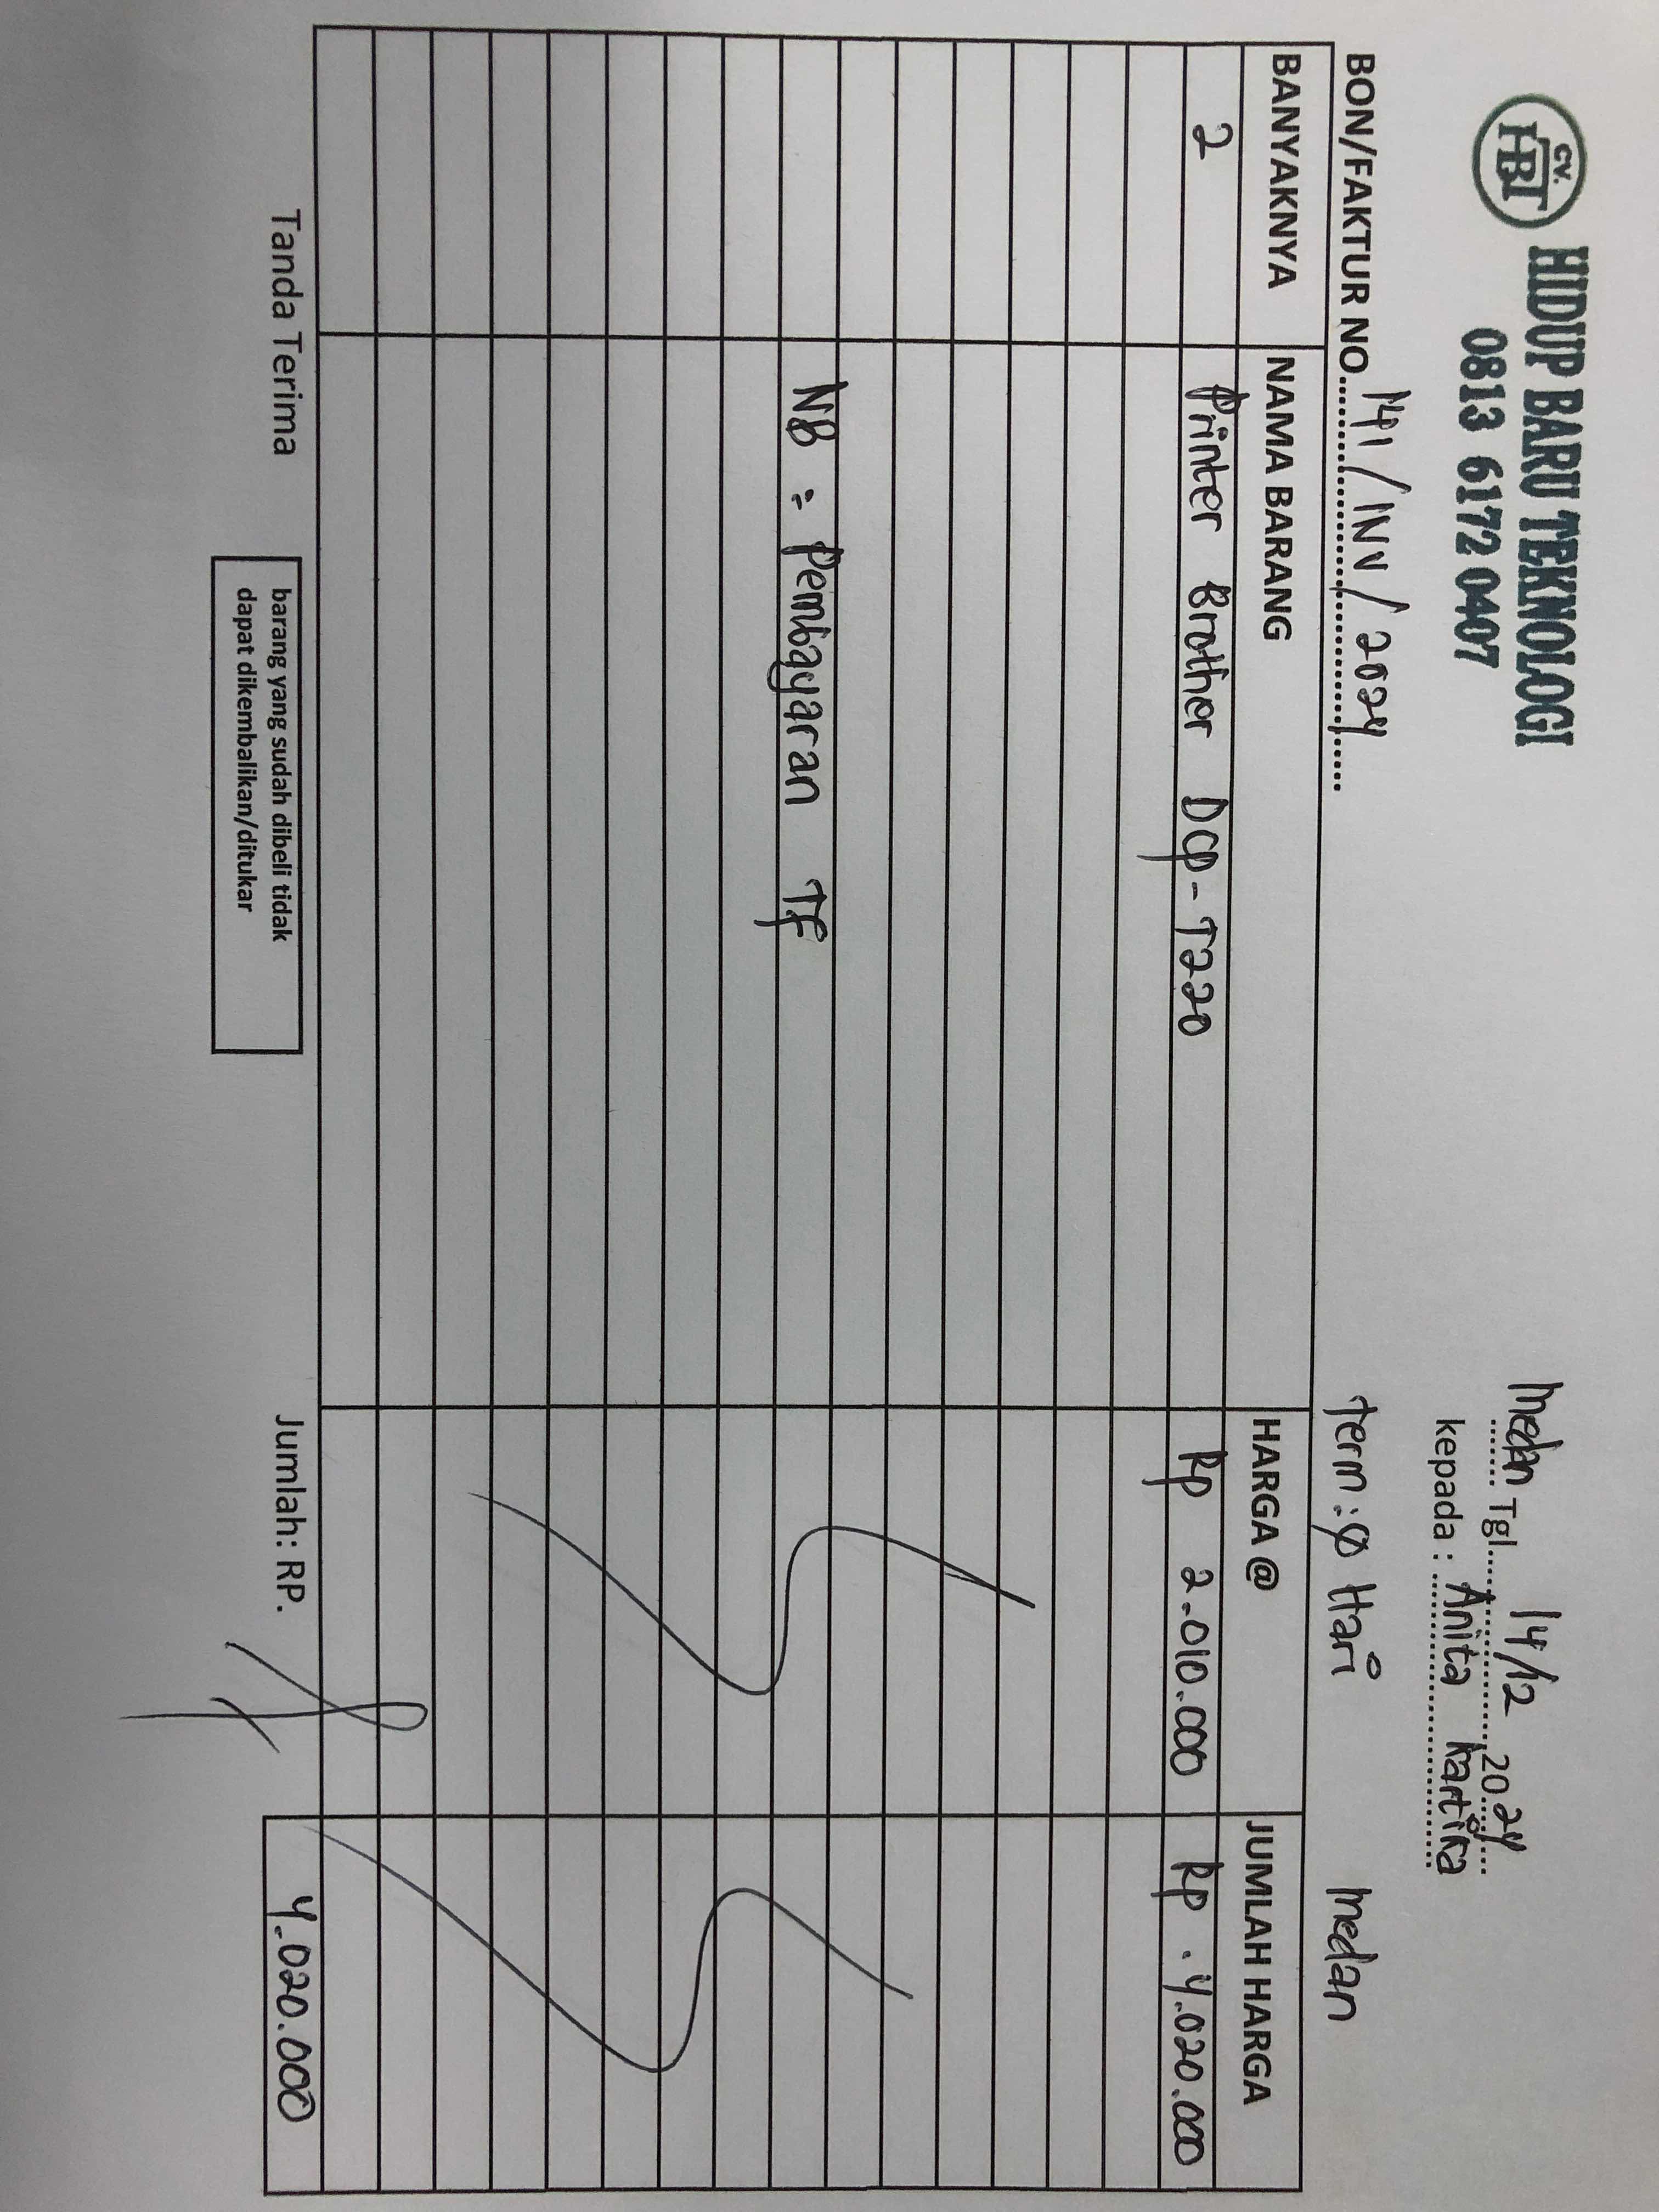 CV.
HBT
HIDUP BARU TEKNOLOGI
0813 6172 0407
Medan Tgl. 14/12 2024
kepada : Anita Kartika
BON/FAKTUR NO. 141 / INV / 2024
Term : 0 Hari
Medan
BANYAKNYA NAMA BARANG HARGA @ JUMLAH HARGA
2 Printer Brother DCP-T220 Rp 2.010.000 Rp. 4.020.000
NB : Pembayaran TF
Tanda Terima
barang yang sudah dibeli tidak
dapat dikembalikan/ditukar
Jumlah: RP. 4.020.000